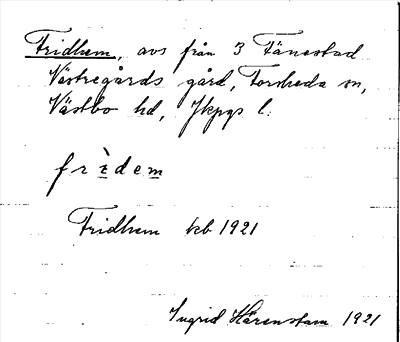 Fridhem, avs från 3 Tånestad
Västregårds gård, Forsheda sn,
Västbo hd, Jkpgs l.
frìdem
Fridhem kb 1921
Ingrid Härenstam 1921